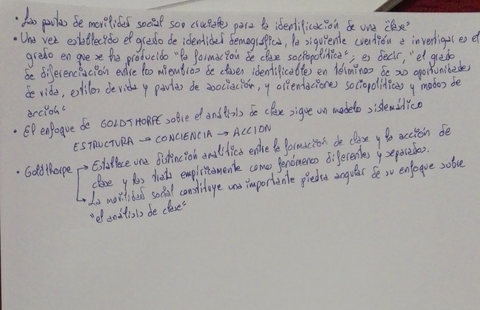 • Las pautas de movilidad social son cruciales para la identificación de una "clase"
• Una vez establecido el grado de identidad demográfica, la siguiente cuestión a investigar es el
grado en que se ha producido "la formación de clase sociopolítica"; es decir, "el grado
de diferenciación entre los miembros de clases identificables en términos de sus oportunidades
de vida, estilos de vida y pautas de asociación, y orientaciones sociopolíticas y modos de
acción"
• El enfoque de GOLDTHORPE sobre el análisis de clase sigue un modelo sistemático
ESTRUCTURA → CONCIENCIA → ACCION
• Goldthorpe → Establece una distinción analítica entre la formación de clase y la acción de
clase y las trata empíricamente como fenómenos diferentes y separados.
→ La movilidad social constituye una importante piedra angular de su enfoque sobre
"el análisis de clase"